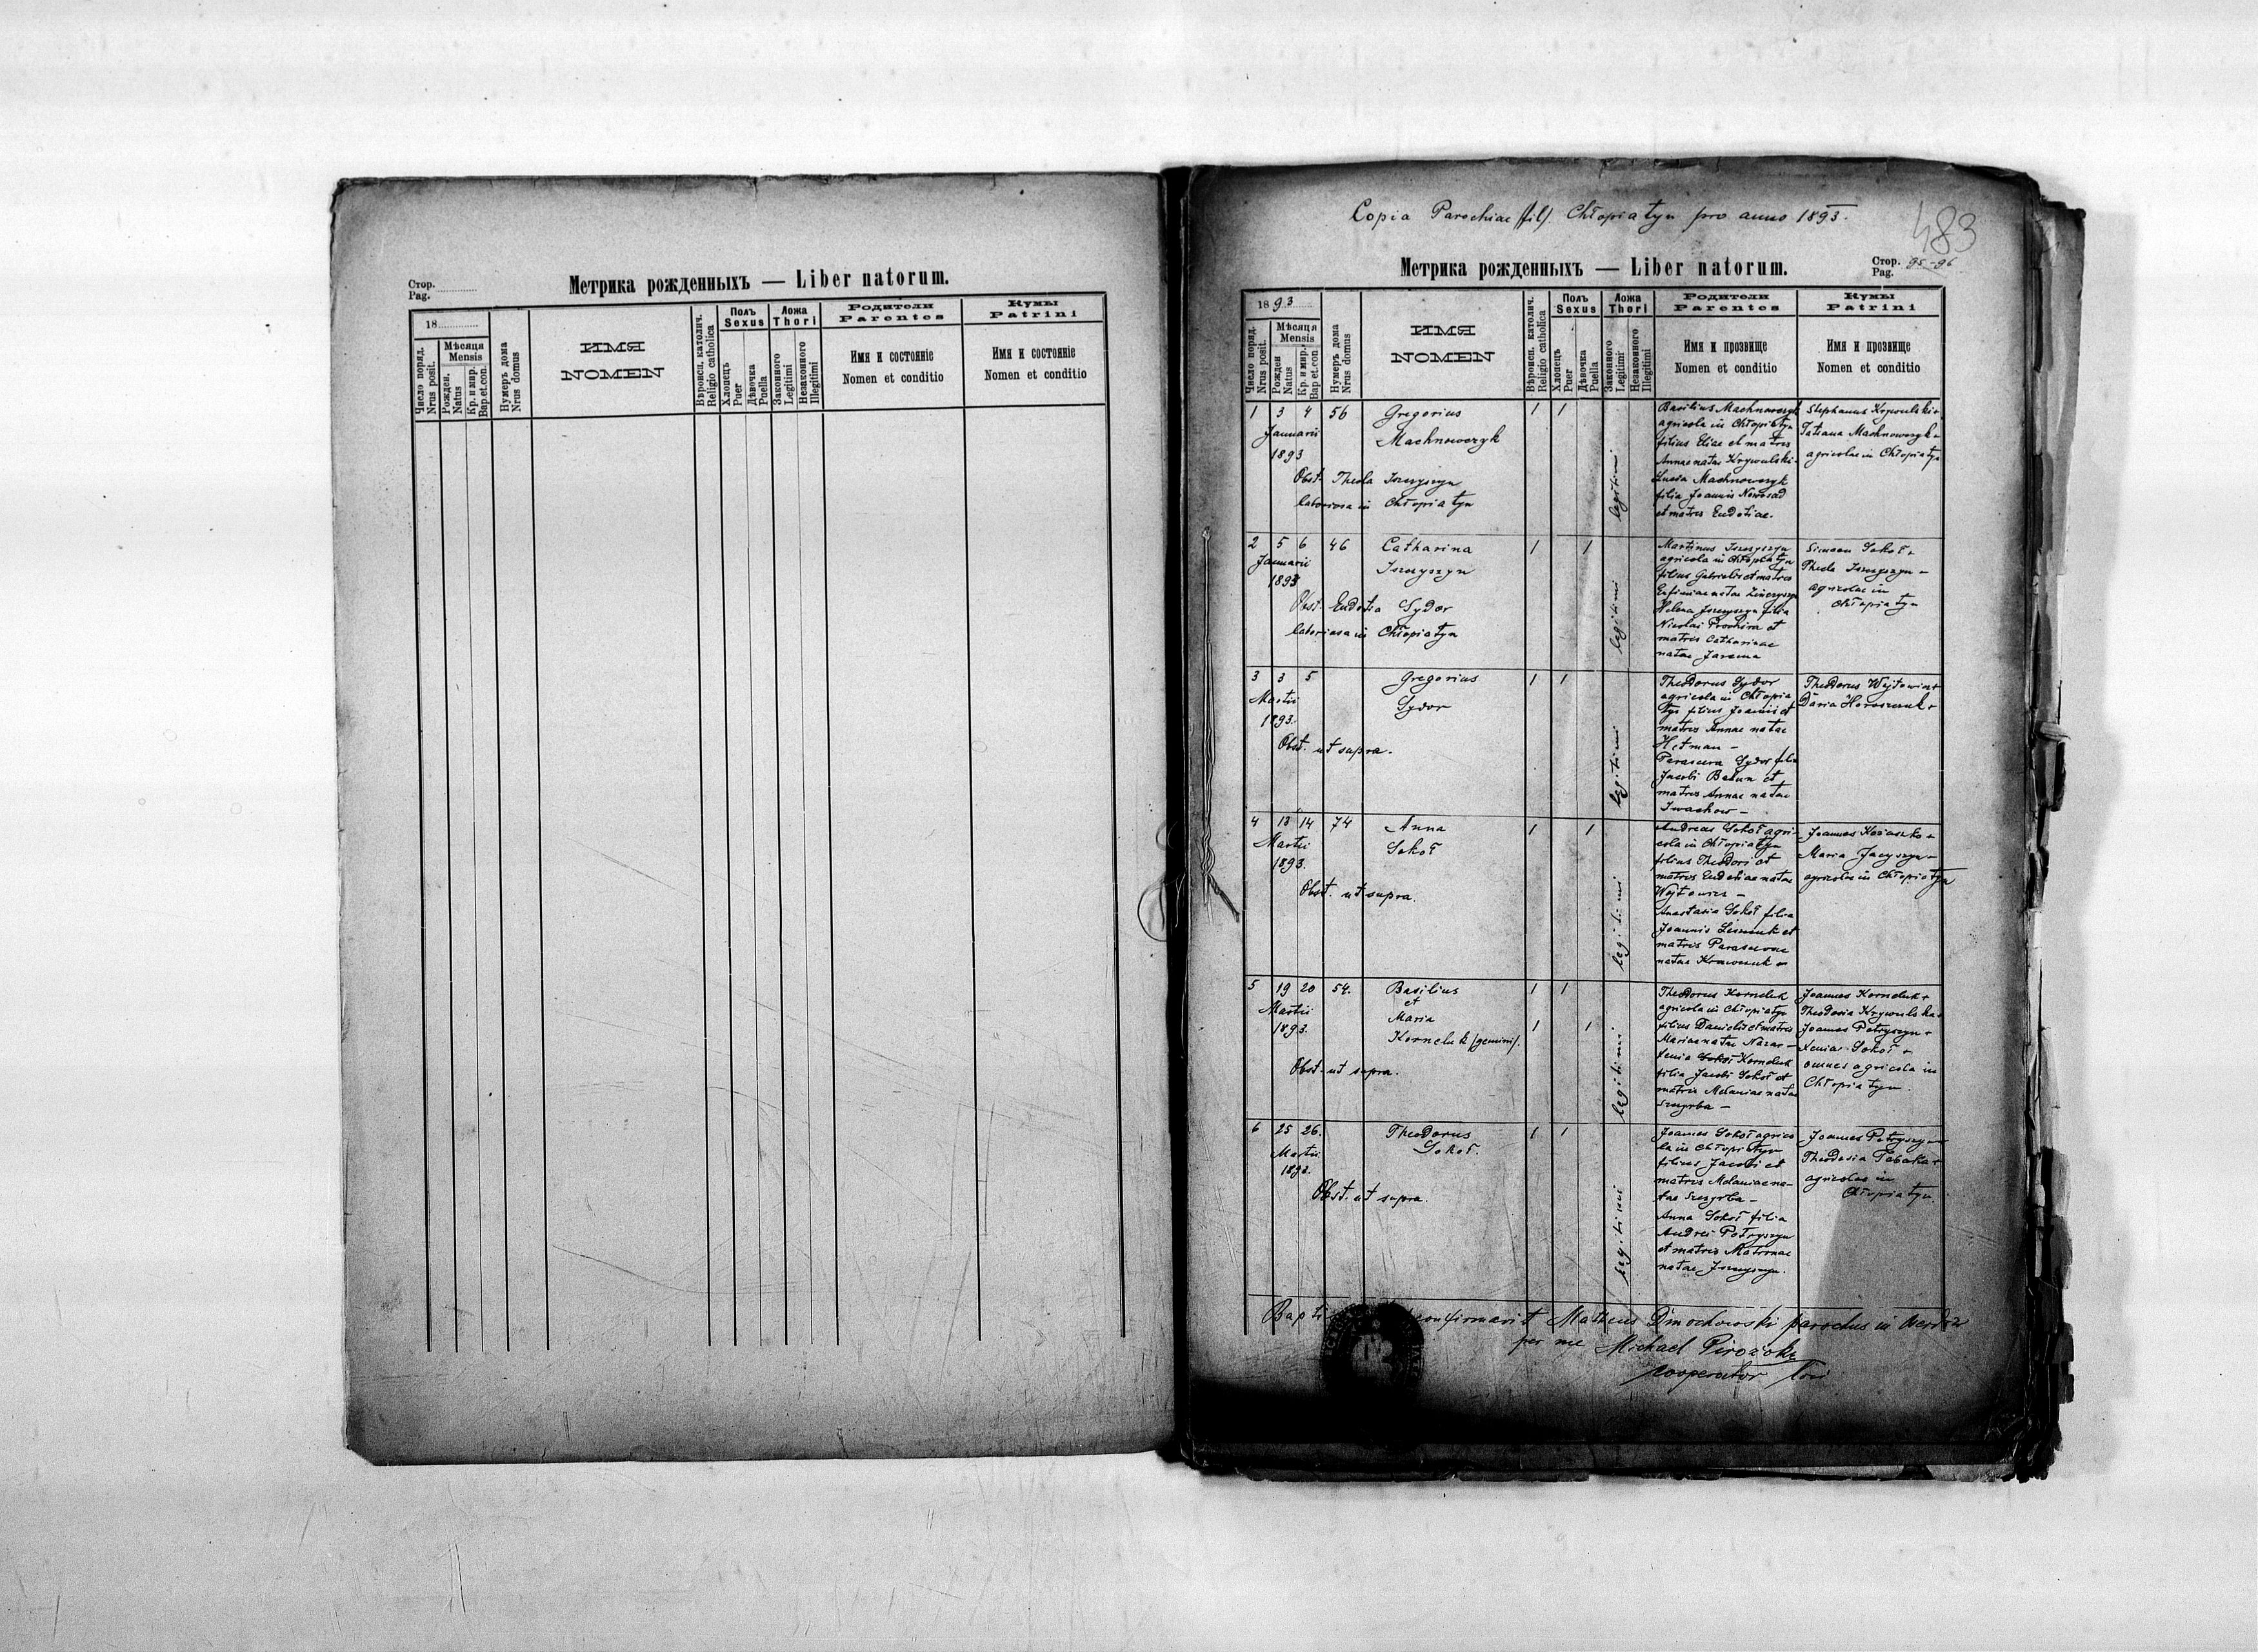 Стор.
Pag.
Метрика рожденныхъ — Liber natorum.
18
Число поряд.
Nrus posit.
Мѣсяця
Mensis
Рожден.
Natus
Кр. и мир.
Bap.et.con.
Нумеръ дома
Nrus domus
ИМЯ
NOMEN
Вѣроисп. католич.
Religio catholica
Полъ
Sexus
Хлопецъ
Puer
Дѣвочка
Puella
Ложа
Thori
Законного
Legitimi
Незаконного
Illegitimi
Родители
Parentes
Имя и состоянiе
Nomen et conditio
Кумы
Patrini
Имя и состоянiе
Nomen et conditio
Copia Parochiae (fil). Chłopiatyn pro anno 1893.
483
Метрика рожденныхъ — Liber natorum.
Стор.
Pag. 95-96
1893
Число поряд.
Nrus posit.
Мѣсяця
Mensis
Рожден
Natus
Кр. и мир.
Bap et.con
Нумеръ дома
Nrus domus
ИМЯ
NOMEN
Вѣроисп. католич.
Religio catholica
Полъ
Sexus
Хлопецъ
Puer
Дѣвочка
Puella
Ложа
Thori
Законного
Legitimi
Незаконного
Illegitimi
Родители
Parentes
Имя и прозвище
Nomen et conditio
Кумы
Patrini
Имя и прозвище
Nomen et conditio
1 3 4 56 Gregorius 1 1
Januarii Machnowczyk
1893
Obst. Thecla Iszczyszyn
laboriosa in Chłopiatyn
legitimi
Basilius Machnowczyk
agricola in Chłopiatyn
filius Eliae et matris
Annae natae Krywulski-
Machnowczyk
filia Joannis Nowosad
et matris Eudoxiae.
Stephanus Krywulski+
Tatiana Machnowczyk-
agricolae in Chłopiatyn
2 5 6 46 Catharina 1 1
Januarii Iszczyszyn
1893
Obst. Eudoxia Sydor
laboriosa in Chłopiatyn
legitimi
Martinus Iszczyszyn
agricola in Chłopiatyn
filius Gabrielis et matris
Eufimiae natae
Helena Iszczyszyn filia
Nicolai Prochira et
matris Catharinae
natae Jarema
Simeon Sokoł+
Thecla Iszczyszyn -
agricolae in
Chłopiatyn
3 3 5 Gregorius 1 1
Martii Sydor
1893.
Obst. ut supra.
legitimi
Theodorus Sydor
agricola in Chłopia
tyn filius Joannis et
matris Annae natae
Hetman -
Parasceva Sydor filia
Jacobi Bakun et
matris Annae natae
Iwachow -
Theodorus Wojtowicz+
Daria Haraszczuk+
4 13 14 74 Anna 1 1
Martii Sokoł
1893.
Obst. ut supra.
legitimi
Andreas Sokoł agri-
cola in Chłopiatyn
filius Theodori et
matris Eudoxiae natae
Wojtowicz -
Anastasia Sokoł filia
Joannis Leszczuk et
matris Parascevae
natae Krawczuk
Joannes
Maria Jacyszyn-
agricolae in Chłopiatyn
5 19 20 54. Basilius 1 1
Martii et
1893. Maria 1 1
Korneluk /gemini/.
Obst. ut supra.
legitimi
Theodorus Korneluk
agricola in Chłopiatyn
filius Danielis et matris
Mariae natae Nazar -
Xenia Sokoł Korneluk
filia Jacobi Sokoł et
matris Melaniae natae
Szczyrba -
Joannes Korneluk+
Theodosia Krywulska+
Joannes Petryszyn+
Xenia Sokoł +
omnes agricola in
Chłopiatyn.
6 25 26. Theodorus 1 1
Martii Sokoł.
1893.
Obst. ut supra.
legitimi
Joannes Sokoł agrico
la in Chłopiatyn
filius Jacobi et
matris Melaniae na-
tae Szczyrba -
Anna Sokoł filia
Andrei Petryszyn
et matris Matronae
natae Iszczyszyn.
Joannes Petryszyn
Theodosia Tabaka+
agricolae in
Chłopiatyn.
confirmavit Matheus Dmochowski parochus in
per me Michael
cooperator loci